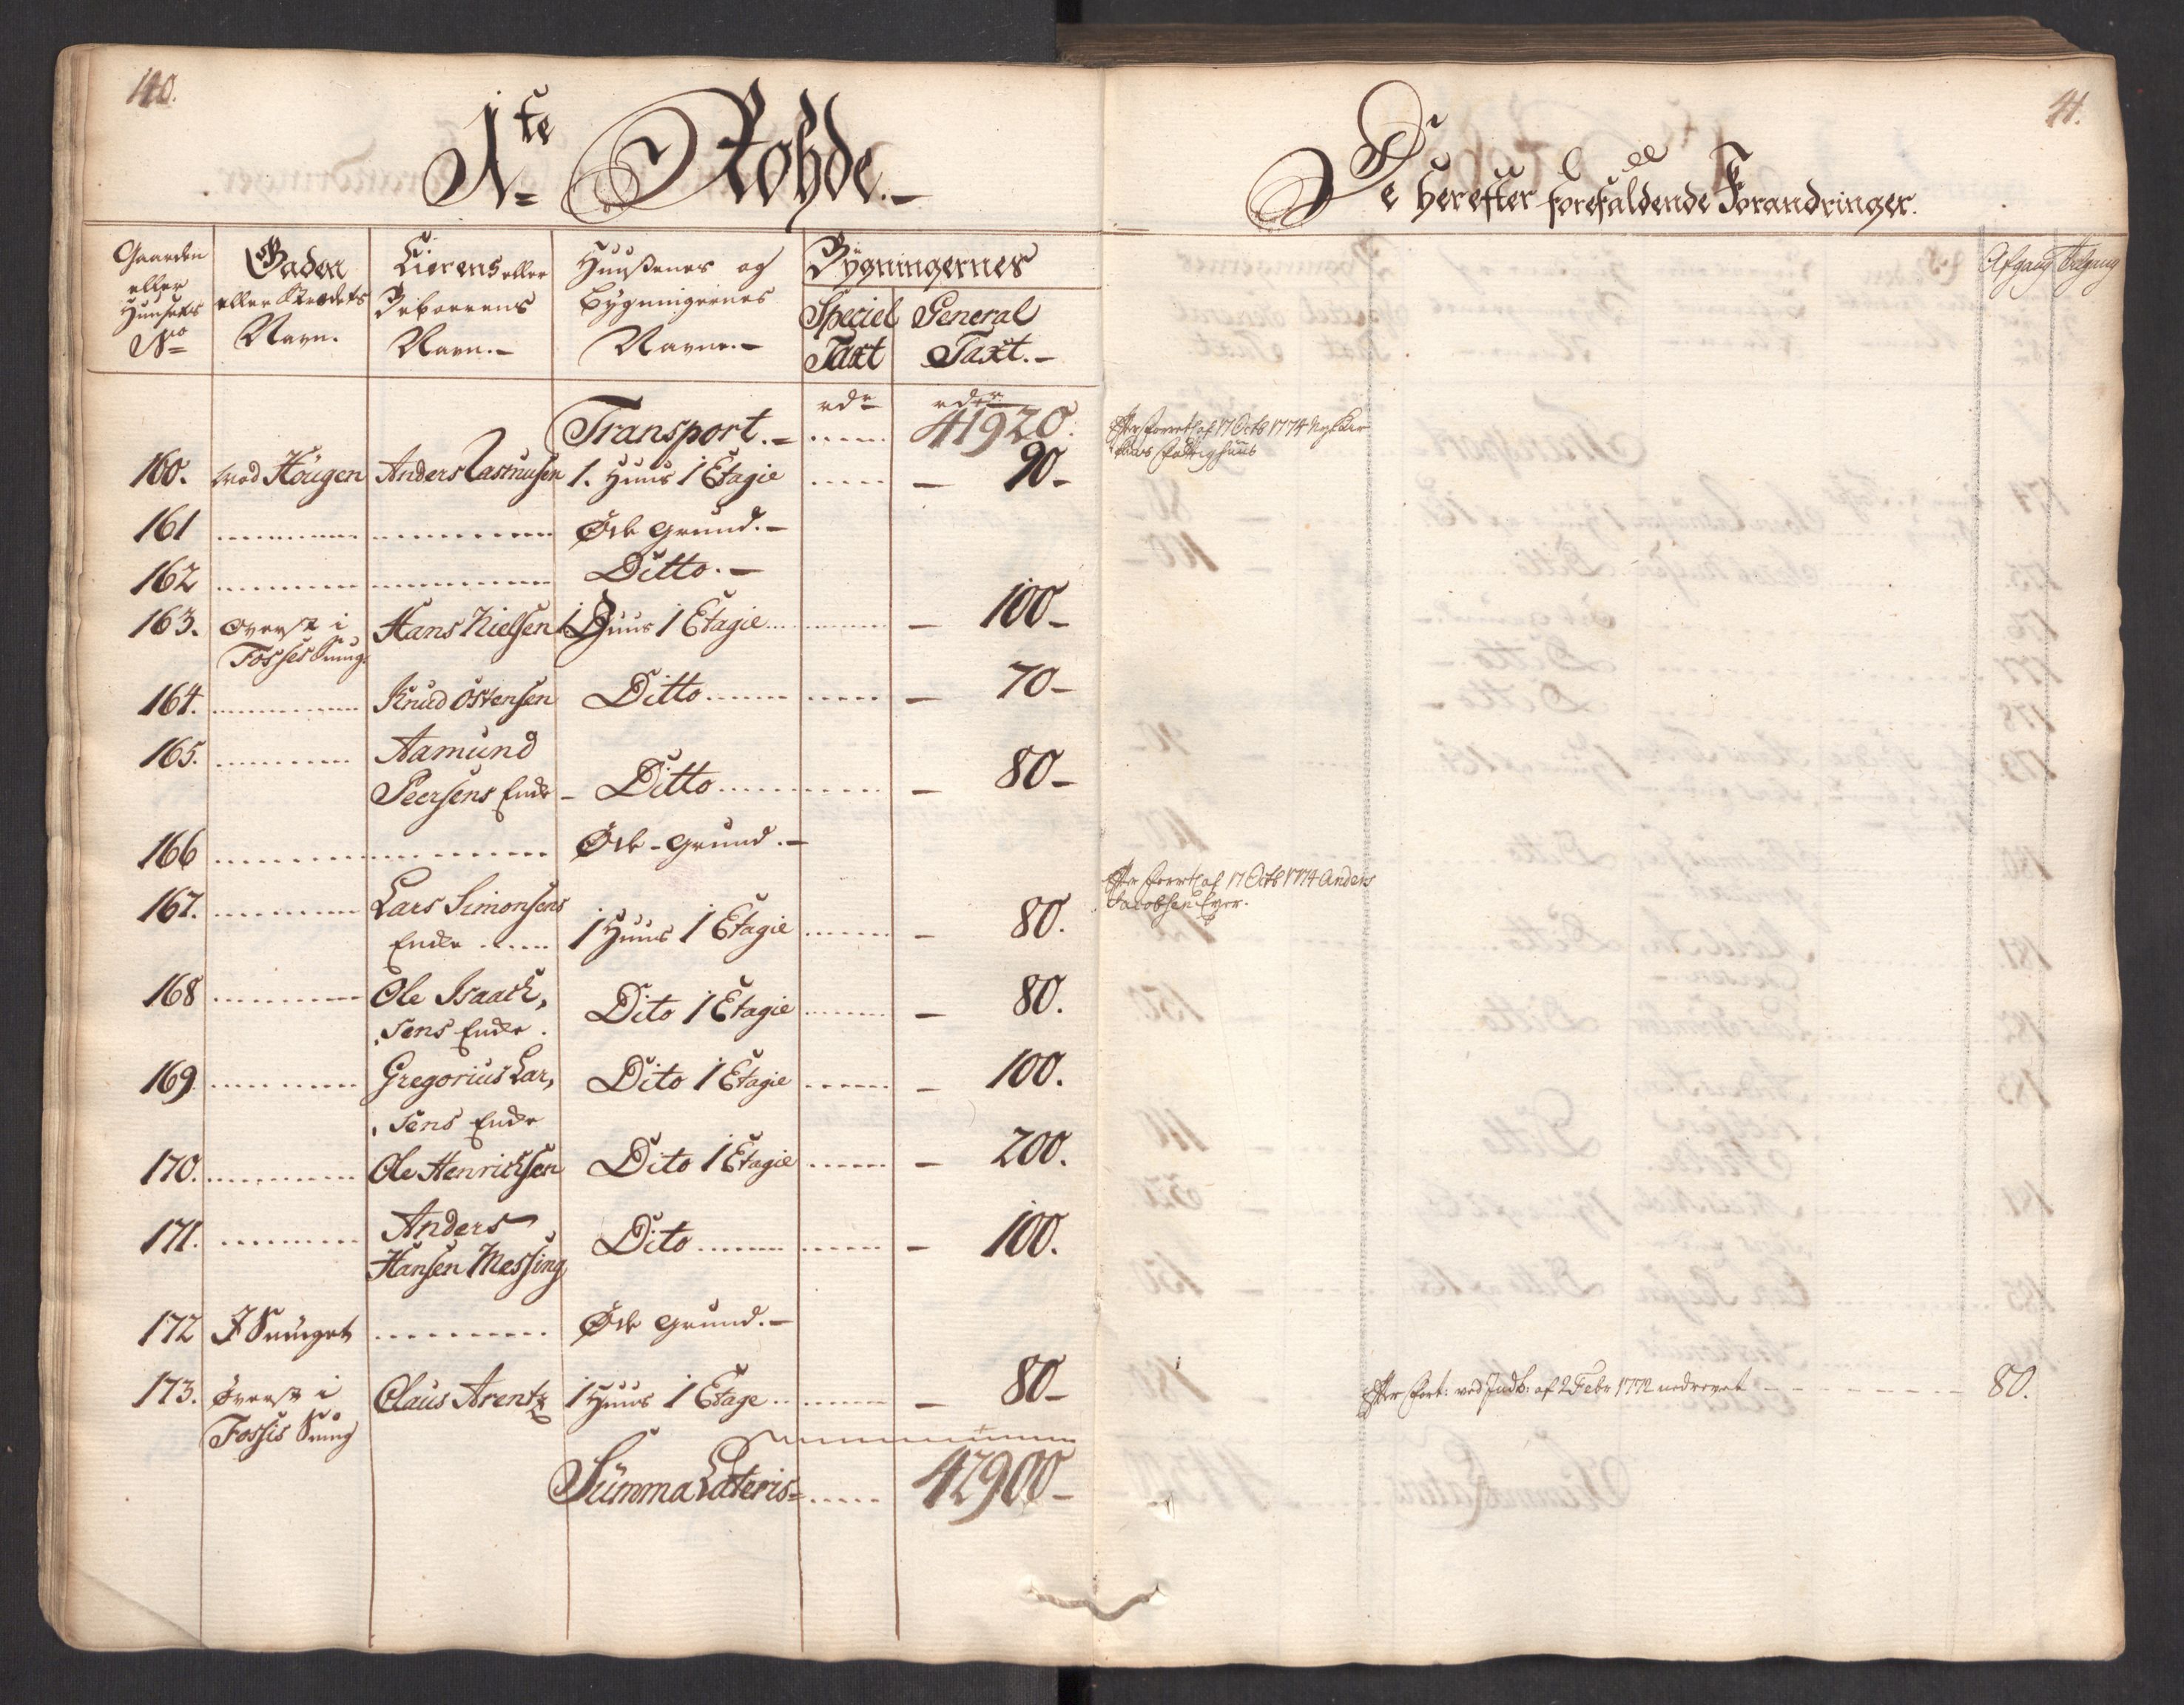 40.
1te Rohde.-
Gaarden eller Huusets No
Gaden eller Strædets Navn.
Eierens eller Beboerens Navn.-
Huusenes og Bygningernes Navne.-
Bygningernes
Speciel Taxt
General Taxt.-
rdr rdr
Transport.- ...... 41920.
160. ved Hougen Anders Rasmusen 1. Huus 1 Etagie ..... - 90-
161 .......... Øde Grund.-
162 .......... Ditto.-
163. Øverst i Hans Nielsen 1 Huus 1 Etagie ..... - 100-
Fosses Smug.
164. .......... Knud Østensen Ditto ..... - 70-
165. .......... Aamund
Peersens Enke - Ditto ..... - 80-
166 .......... Øde-Grund.-
167. .......... Lars Simonsens
Enke ..... 1 Huus 1 Etagie ..... - 80.
168 .......... Ole Isaach,
,sens Enke. Dito 1 Etagie ..... - 80.
169 .......... Gregorius Lar, Dito 1 Etagie ..... - 100.
,sens Enke
170. .......... Ole Henrichsen Dito 1 Etagie ..... - 200.
171. .......... Anders
Hansen Messing Dito ..... - 100.
172 I Smuget .......... Øde Grund.-
173. Øverst i Claus Arentz 1 Huus 1 Etage ..... - 80-
Fossis Smug
Summa Lateris= ..... 42900-
41.
De herefter forefaldende Forandringer.
Afgang Tilgang
Efter Forretn. af 17 Octb 1774
Efter Forretn. af 17 Octb 1774 Anders
Jacobsen Eyer.
Efter Fort: ved Indb: af 2 Febr 1772 nedrevet - - - - - 80.